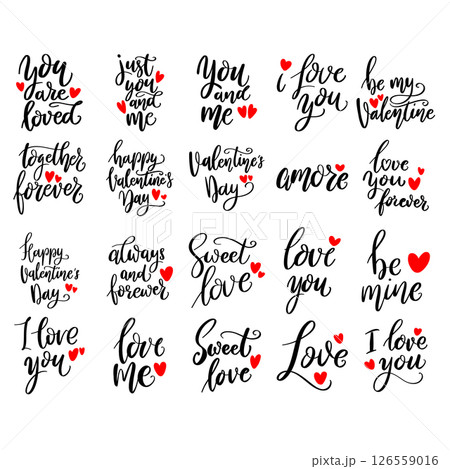 You are loved
just you and me
You and me
i love you
be my Valentine
together forever
happy Valentine's Day
Valentine's Day
amore
love you forever
Happy Valentine's Day
always and forever
Sweet love
love you
be mine
I love you
love me
Sweet love
Love
I love you
PIXTA
126559016